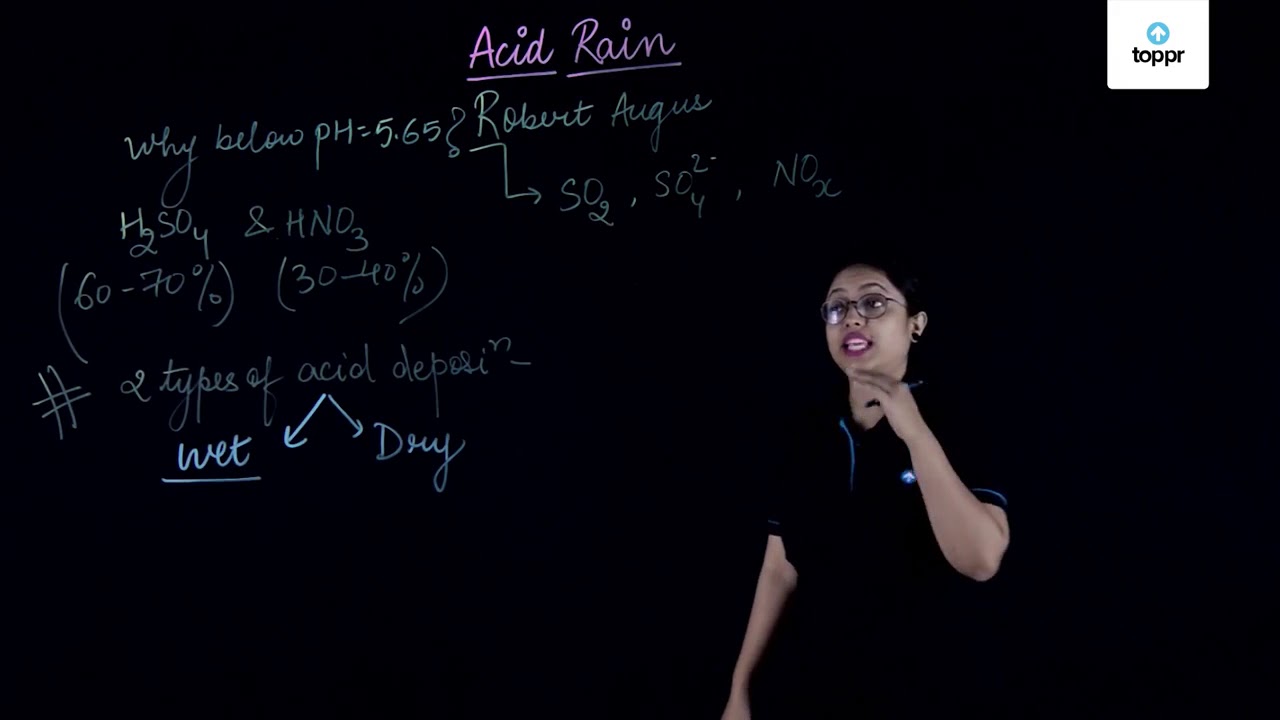 Acid Rain
toppr
Why below pH=5.65? Robert Augus
SO₂, SO₄²⁻, NOₓ
H₂SO₄ & HNO₃
(60-70%) (30-40%)
# 2 types of acid deposiⁿ
Wet Dry